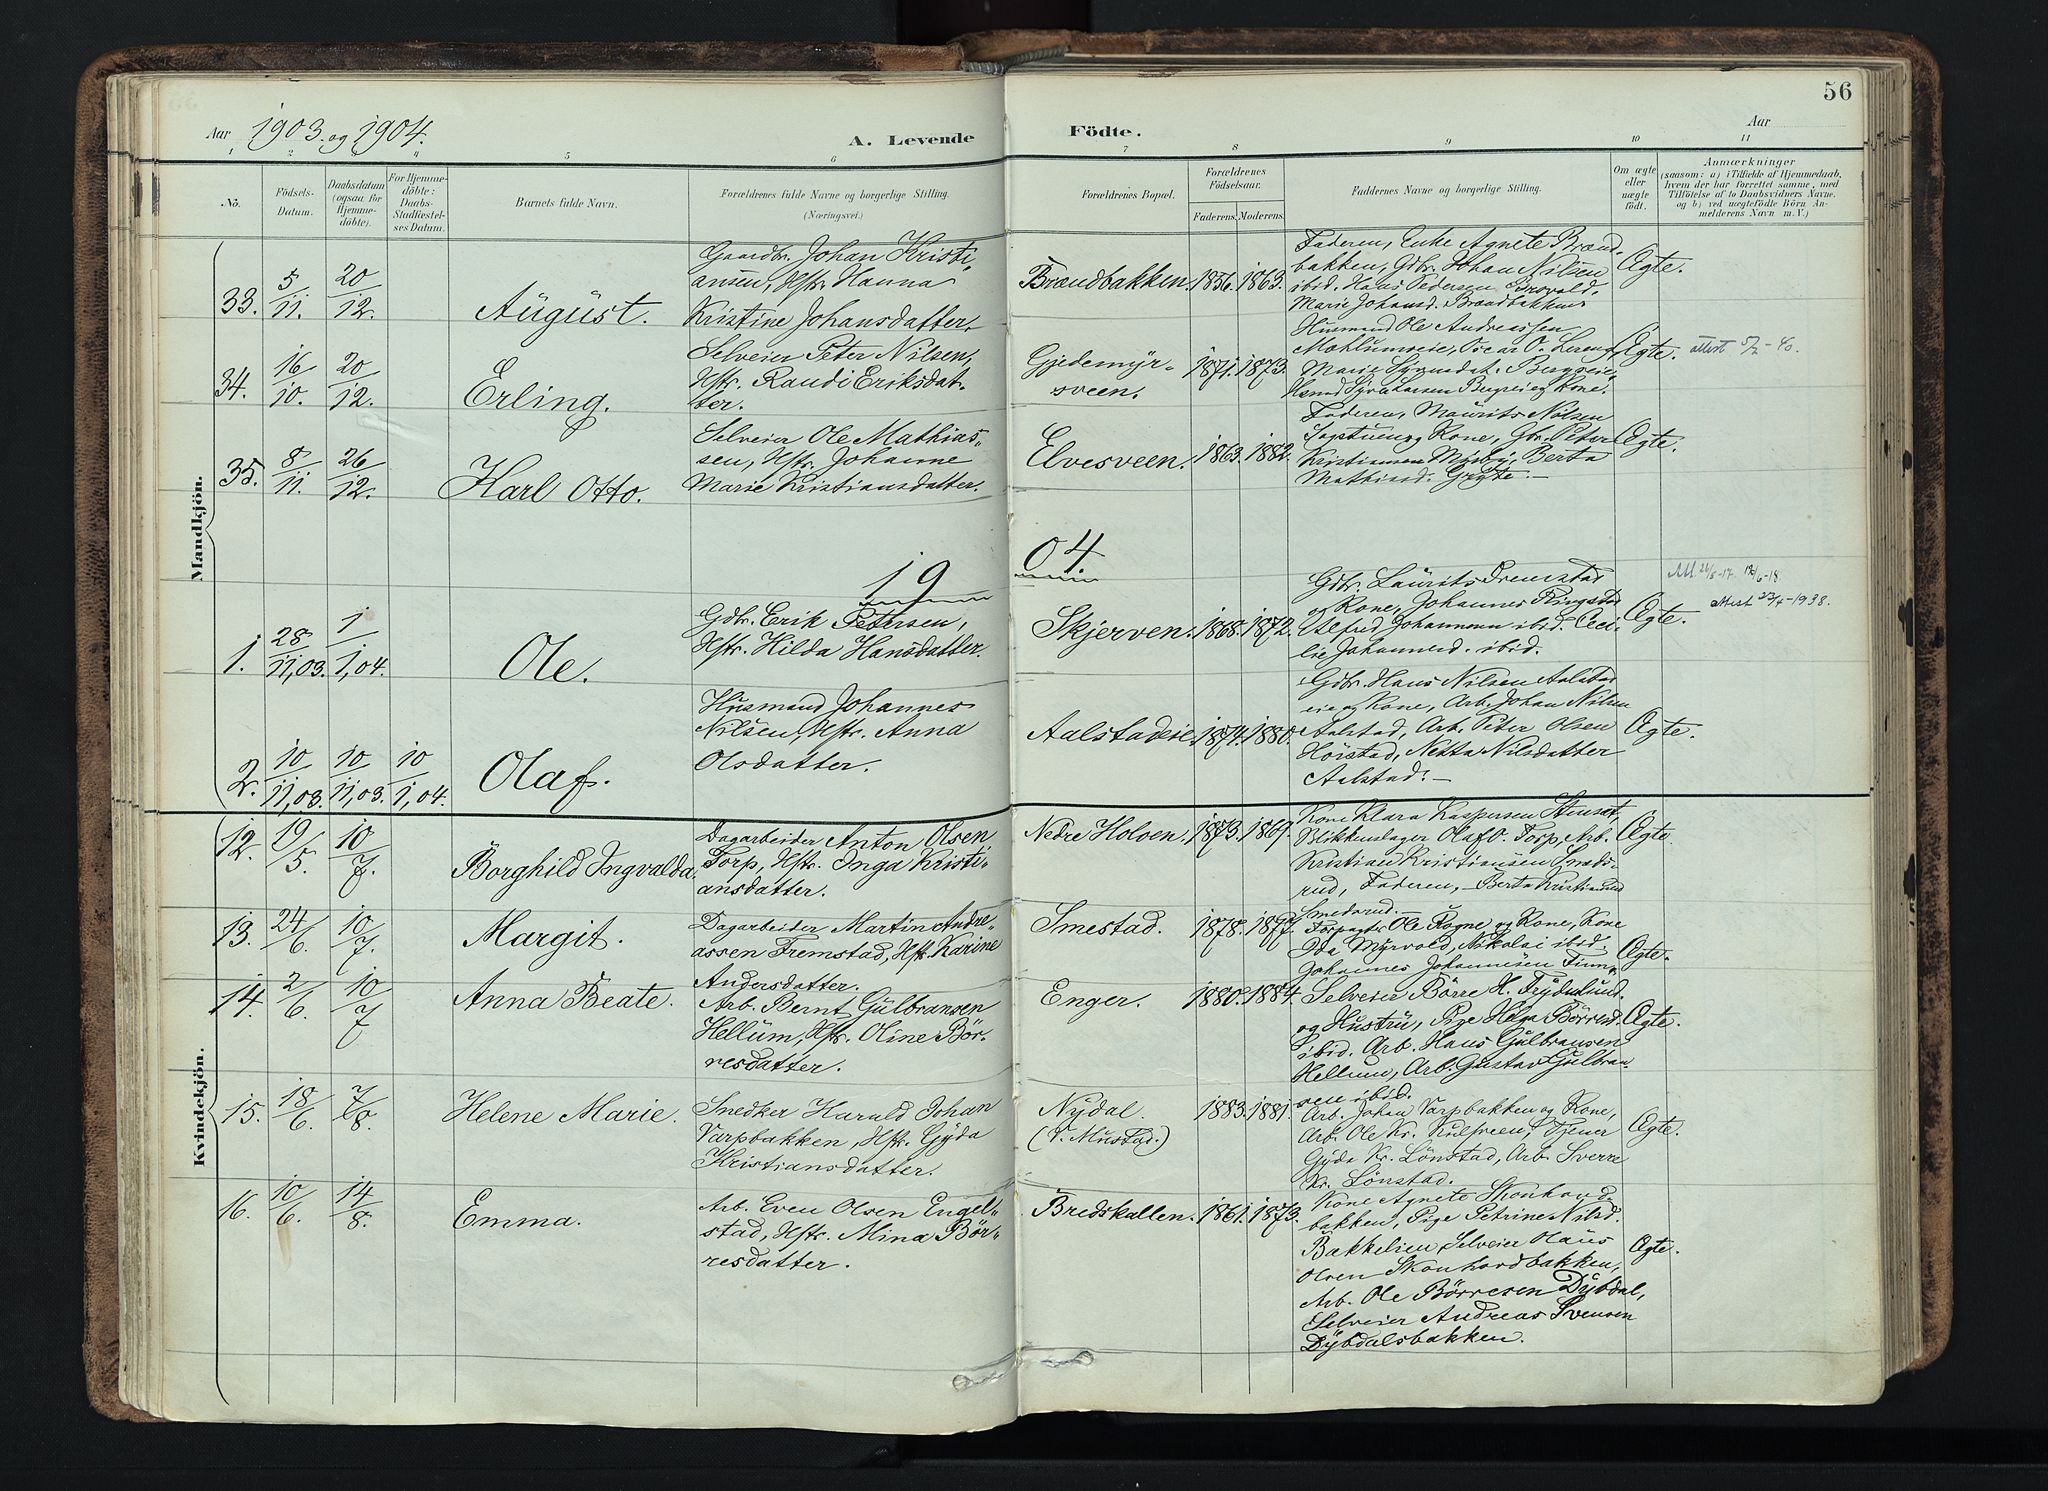 Aar 1903. og 1904.
A. Levende Födte.
Aar
56
1 2 4 5 6 7 8 9 10 11
No.
Födsels-Datum.
Daabsdatum (ogsaa for Hjemme-döbte).
For Hjemme-döbte: Daabs-Stadfæstel-ses Datum.
Barnets fulde Navn.
Forældrenes fulde Navne og borgerlige Stilling. (Næringsvei.)
Forældrenes Bopæl.
Forældrenes Födselsaar.
Faderens. Moderens.
Faddernes Navne og borgerlige Stilling.
Om ægte eller uægte födt.
Anmærkninger
(saasom: a) i Tilfælde af Hjemmedaab, hvem der har forrettet samme, med Tilföielse af to Daabsvidners Navne, og b) ved uægtefödte Börn An-melderens Navn m. V.)
Mandkjön.
33. 5/11. 20/12. August.
Gaardbr. Johan Kristi-
ansen, Hstr. Hanna
Kristine Johansdatter.
Brændbakken. 1856. 1863.
Faderen, Enke Agnete Brænd-
bakken, Gdbr. Johan Nilsen
ibid. Hans Pedersen
Marie Johansd. Brændbakken
Ægte.
34. 16/10. 20/12. Erling.
Selveier Peter Nilsen,
Hstr. Randi Eriksdat-
ter.
Gjedemyr-
sveen.
1871. 1873.
Husmand Ole Andreassen
Mæhlumseie, Oscar O.
Marie
Ægte.
attest 5/2 - 40.
35. 8/11. 26/12. Karl Otto.
Selveier Ole Mathias-
sen, Hstr. Johanne
Marie Kristiansdatter.
Elvesveen. 1863. 1882.
Faderen, Maurits Nilsen
og Kone, Gbr. Peter
Kristiansen Myrby, Berta
Mathisd.
Ægte.
19 04.
1. 28/11,03. 1/1,04. Ole.
Gdbr. Erik Petersen,
Hstr. Hilda Hansdatter.
Skjerven. 1868. 1872.
Gdbr. Laurits Dremstad
og Kone, Johannes Ringstad
Alfred Johannesen ibid. Ceci-
lie Johannesd. ibid.
Ægte.
Attest 23/4-1938.
2. 10/11,03. 10/11,03. 10/1,04. Olaf.
Husmand Johannes
Nilsen, Hstr. Anna
Olsdatter.
Aalstadeie. 1874. 1880.
Gdbr. Hans Nilsen Aalstad
eie og Kone, Arb. Johan Nilsen
Aalstad, Arb. Peter Olsen
Höistad, Netta Nilsdatter
Aalstad. -
Ægte.
Kvindekjön.
12. 19/5. 10/7. Borghild Ingvalda.
Dagarbeider Anton Olsen
Torp, Hstr. Inga Kristi-
ansdatter.
Nedre Holven. 1873. 1869.
Kone Klara Kaspersen
Blikkenslager Olaf O. Torp, Arb.
Kristian Kristiansen Smeds-
rud, Faderen, - Berta Kristiansd
Smedsrud.
Ægte.
13. 24/6. 10/7. Margit.
Dagarbeider Martin Andre-
assen Fremstad, Hstr. Karine
Andersdatter.
Smestad. 1878. 1877.
Forpagter Ole Rogne og Kone, Kone
Ida Myrvold, Nikolai ibid.
Johannes Johannesen
Ægte.
14. 2/6. 10/7 Anna Beate.
Arb. Bernt Gulbransen
Hellum, Hstr. Oline Bör-
resdatter.
Enger. 1880. 1884.
Selveier Börre H. Frydenlund
og Hustru, Pige Helga Börresd.
ibid. Arb. Hans Gulbransen
Hellum, Arb. Gustav Gulbran-
sen ibid.
Ægte.
15. 18/6. 7/8. Helene Marie.
Snedker Harald Johan
Varpbakken, Hstr. Gyda
Kristiansdatter.
Nydal.
(v. Mustad.)
1883. 1881.
Arb. Johan Varpbakken og Kone,
Arb. Ole Kr. Kulsveen, Tjener
Gyda Kr. Lönstad, Arb. Sverre
Kr. Lönstad.
Ægte.
16. 10/6. 14/8. Emma.
Arb. Even Olsen Engel-
stad, Hstr. Mina Bör-
resdatter.
Bredskallen. 1861. 1873.
Kone Agnete Skonhord-
bakken, Pige Petrine Nilsd.
Bakkelien, Selveier Olaus
Olsen Skonhordbakken,
Arb. Ole Börresen Dybdal,
Selveier Andreas Svensen
Dybdalsbakken.
Ægte.